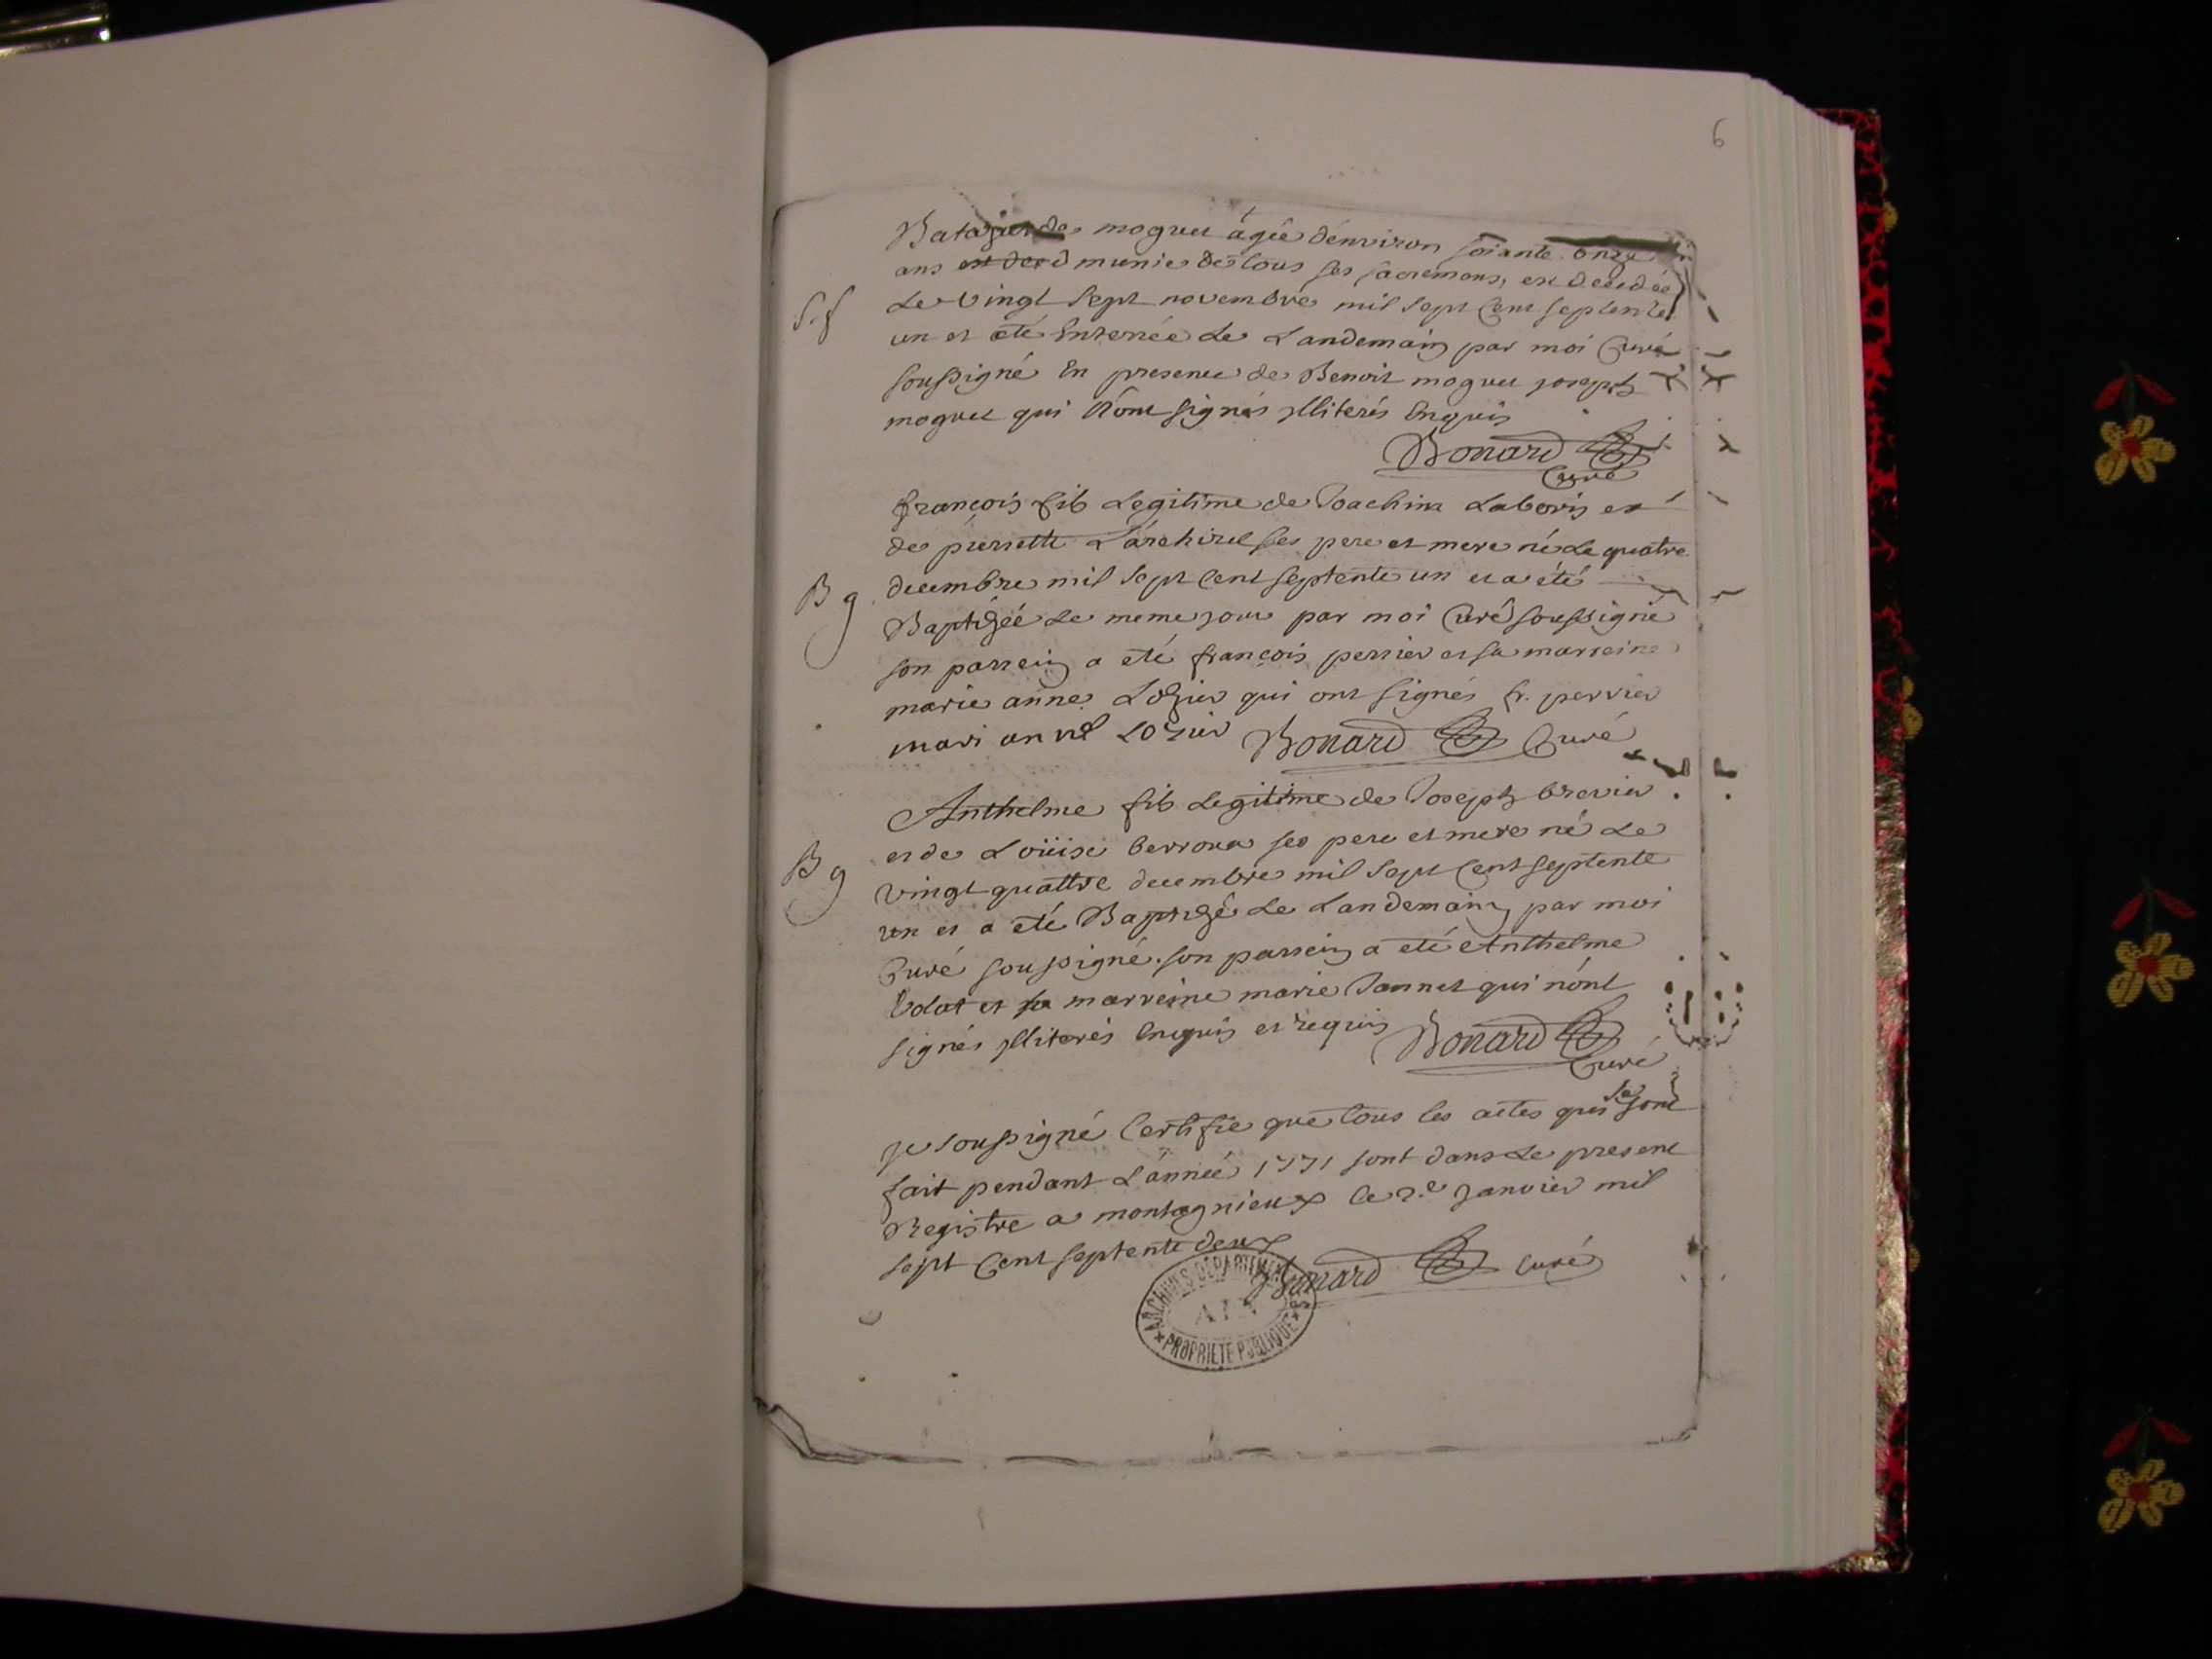 6
moguet agée d'environ soiante onze
ans est deed munie de tous ses sacremens, est decedée
S. f Le vingt sept novembre mil sept cent septente
un et eté enterrée Le Landemain par moi Curé
soussigné En presence de Benoit moguet joseph
moguet qui n'ont signés jlliterés enquis
Bonard
Curé
françois fils Legitime de Joachim Laboris et
de pierrette Larchirel ses pere et mere né Le quatre
B g decembre mil sept cent septente un et a été
Baptizéé Le meme jour par moi Curé soussigné
son parrein a eté françois perrier et sa marreine
marie anne Lozier qui ont signés fr. perrier
mari anne Lozier Bonard Curé
Anthelme fils Legitime de Joseph brevier
et de Loüise berroux ses pere et mere né Le
B g vingt quattre decembre mil sept cent septente
un et a eté Baptizé Le Landemain par moi
Curé soussigné. son parrein a eté Anthelme
et sa marreine marie Jannet qui n'ont
signés jlliterés enquis et requis Bonard
Curé
je soussigné Certifie que tous les actes qui se sont
fait pendant L'année 1771 sont dans Le present
Registre a montagnieux le 2.e janvier mil
sept cent septente deux
Bonard curé
ARCHIVES DÉPARTEMENTALES
AIN
PROPRIÉTÉ PUBLIQUE